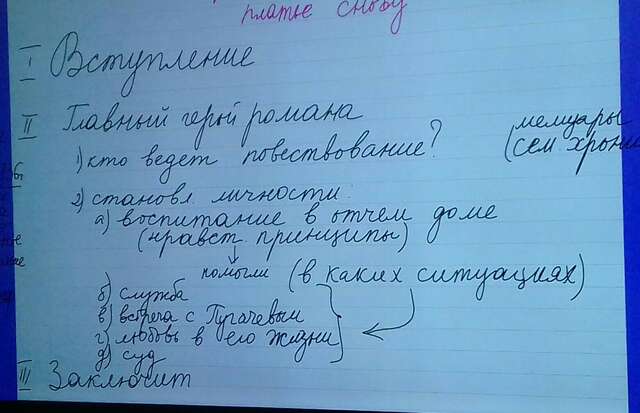 платье снову
I Вступление
II Главный герой романа
1) кто ведет повествование? (мемуары
(сем хрони
2) становл. личности:
а) воспитание в отчем доме
(нравст. принципы)
↓
помогли (в каких ситуациях)
б) служба
в) встреча с Пугачевым
г) любовь в его жизни
д) суд
III Заключит